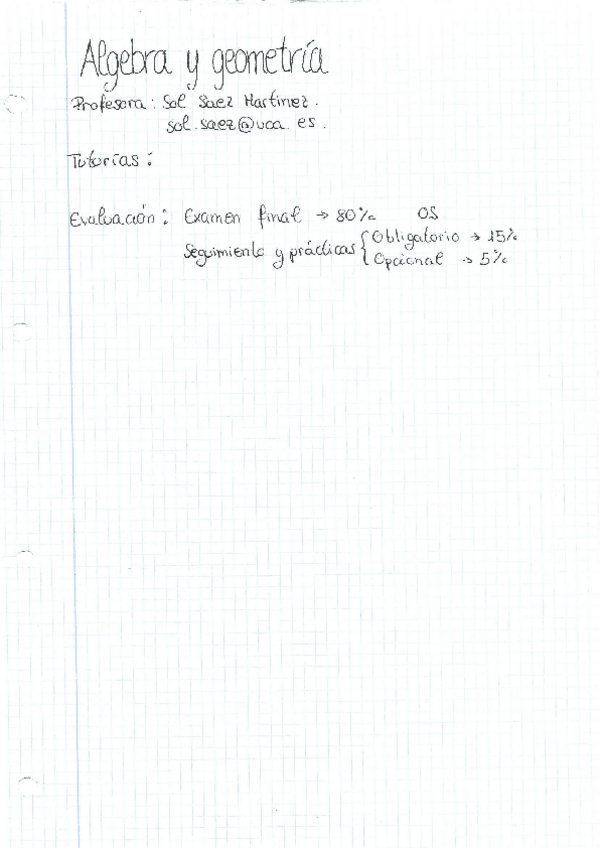 Algebra y geometría
Profesora: Sol Saez Martinez.
sol.saez@uca.es.
Tutorías:
Evaluación: Examen final → 80% OS
Seguimiento y prácticas { Obligatorio → 15%
Opcional → 5%